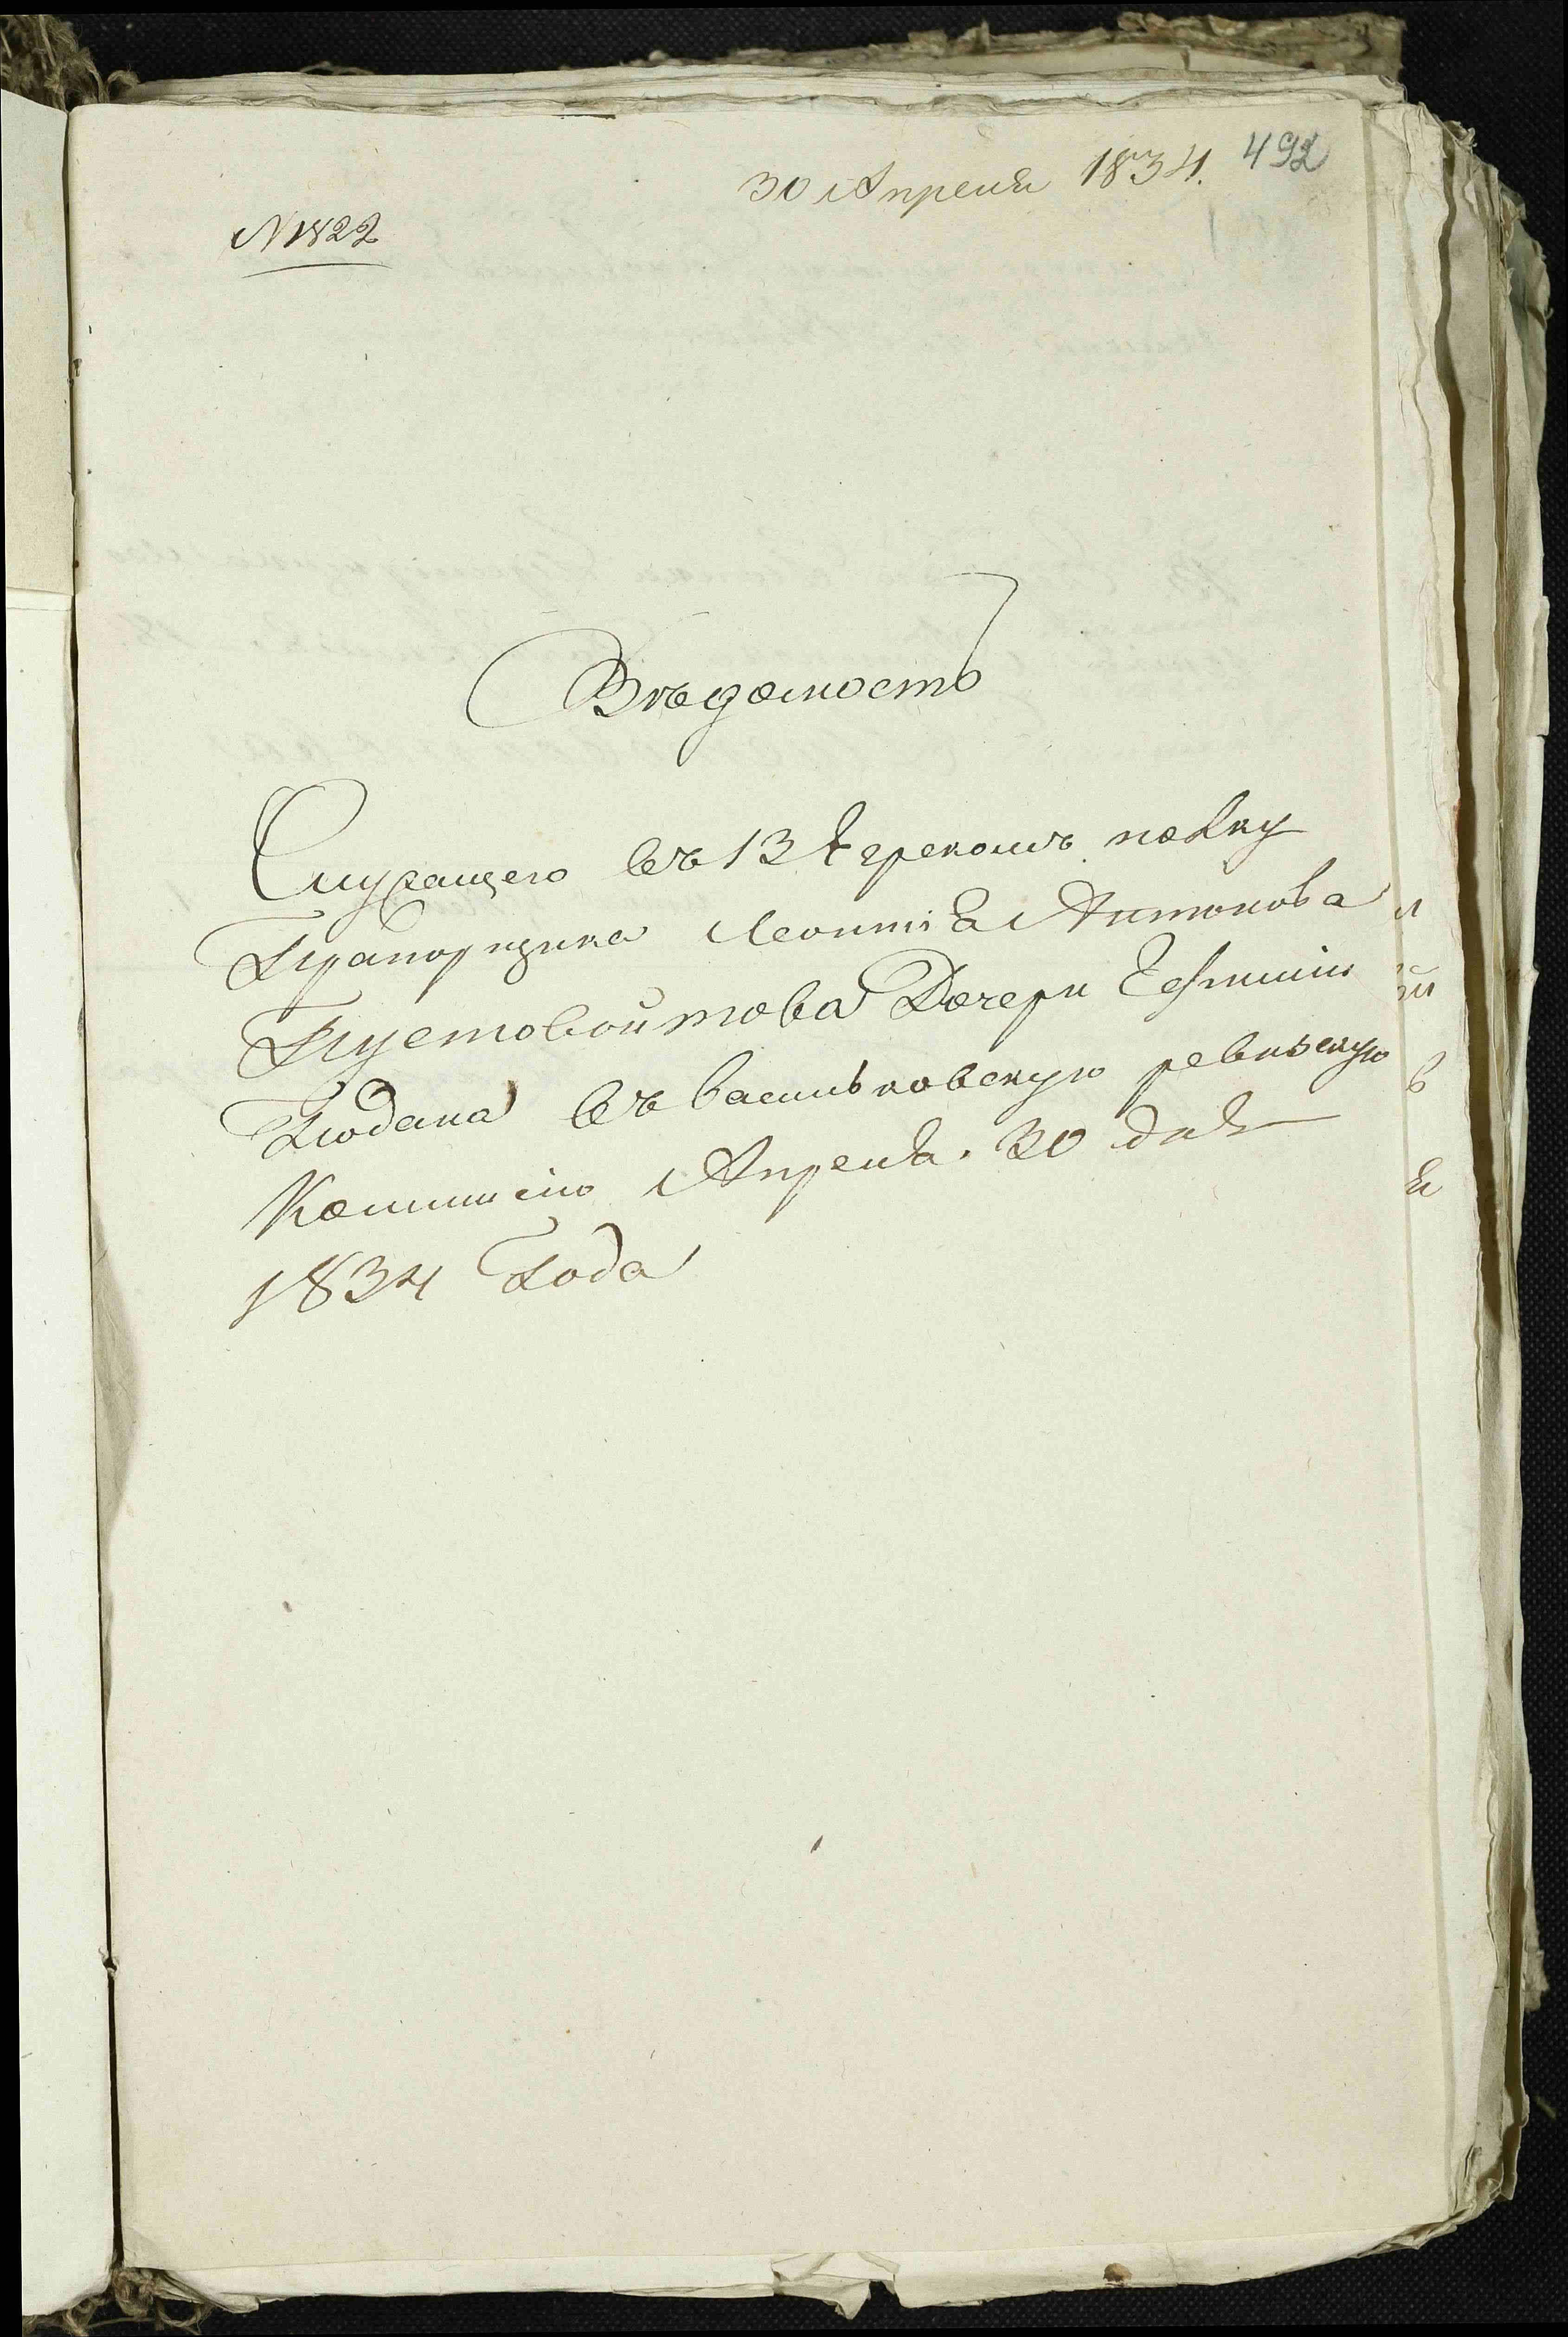 492
30 Апреля 1834.
№ 1822
Вѣдомость
Служащего въ 13 Егерскомъ полку
Прапорщика Леонтія Антонова
Пустовойтова Дочери Ефиміи
Подана въ васильковскую ревизскую
Коммисію Апреля 30 дня
1834 Года